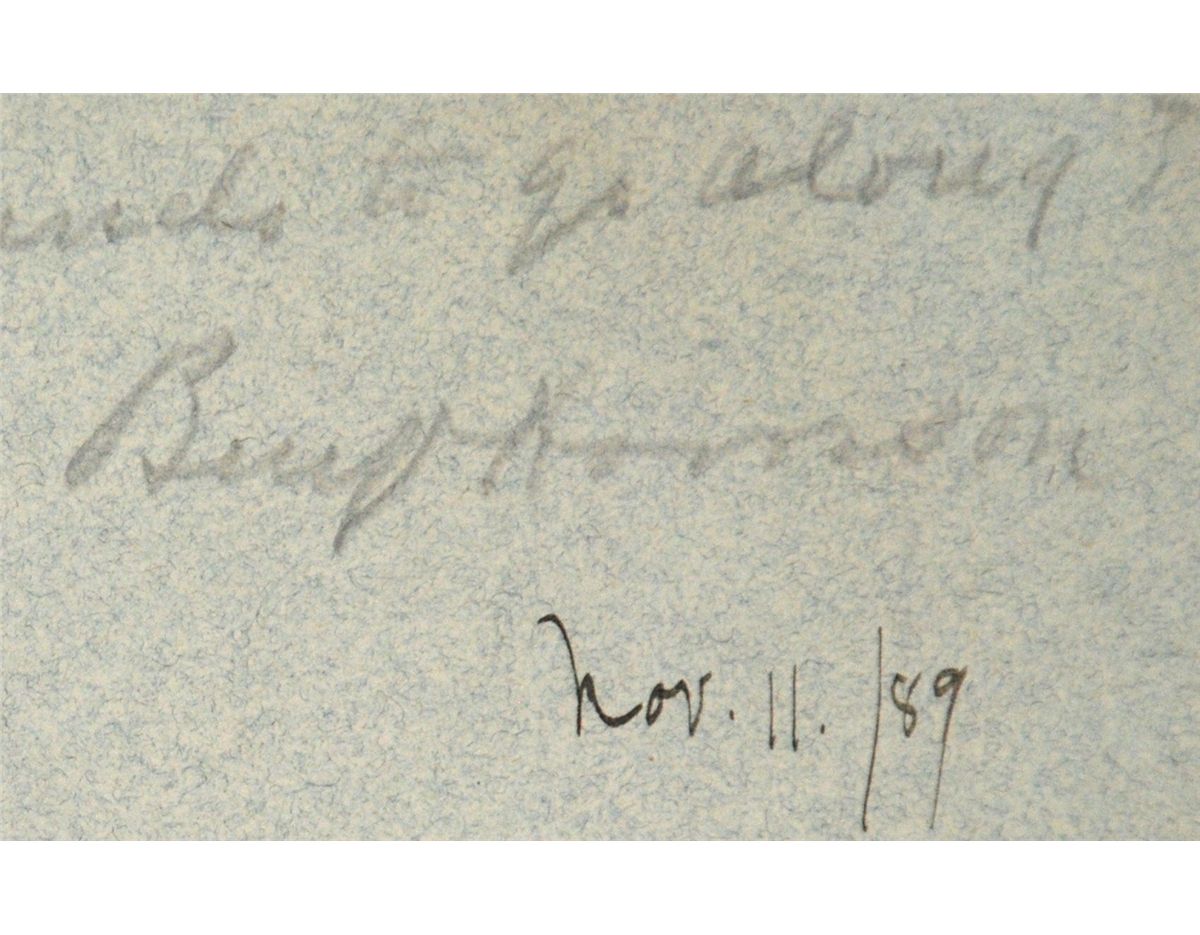 to go along
Benj Harrison
Nov. 11. /89